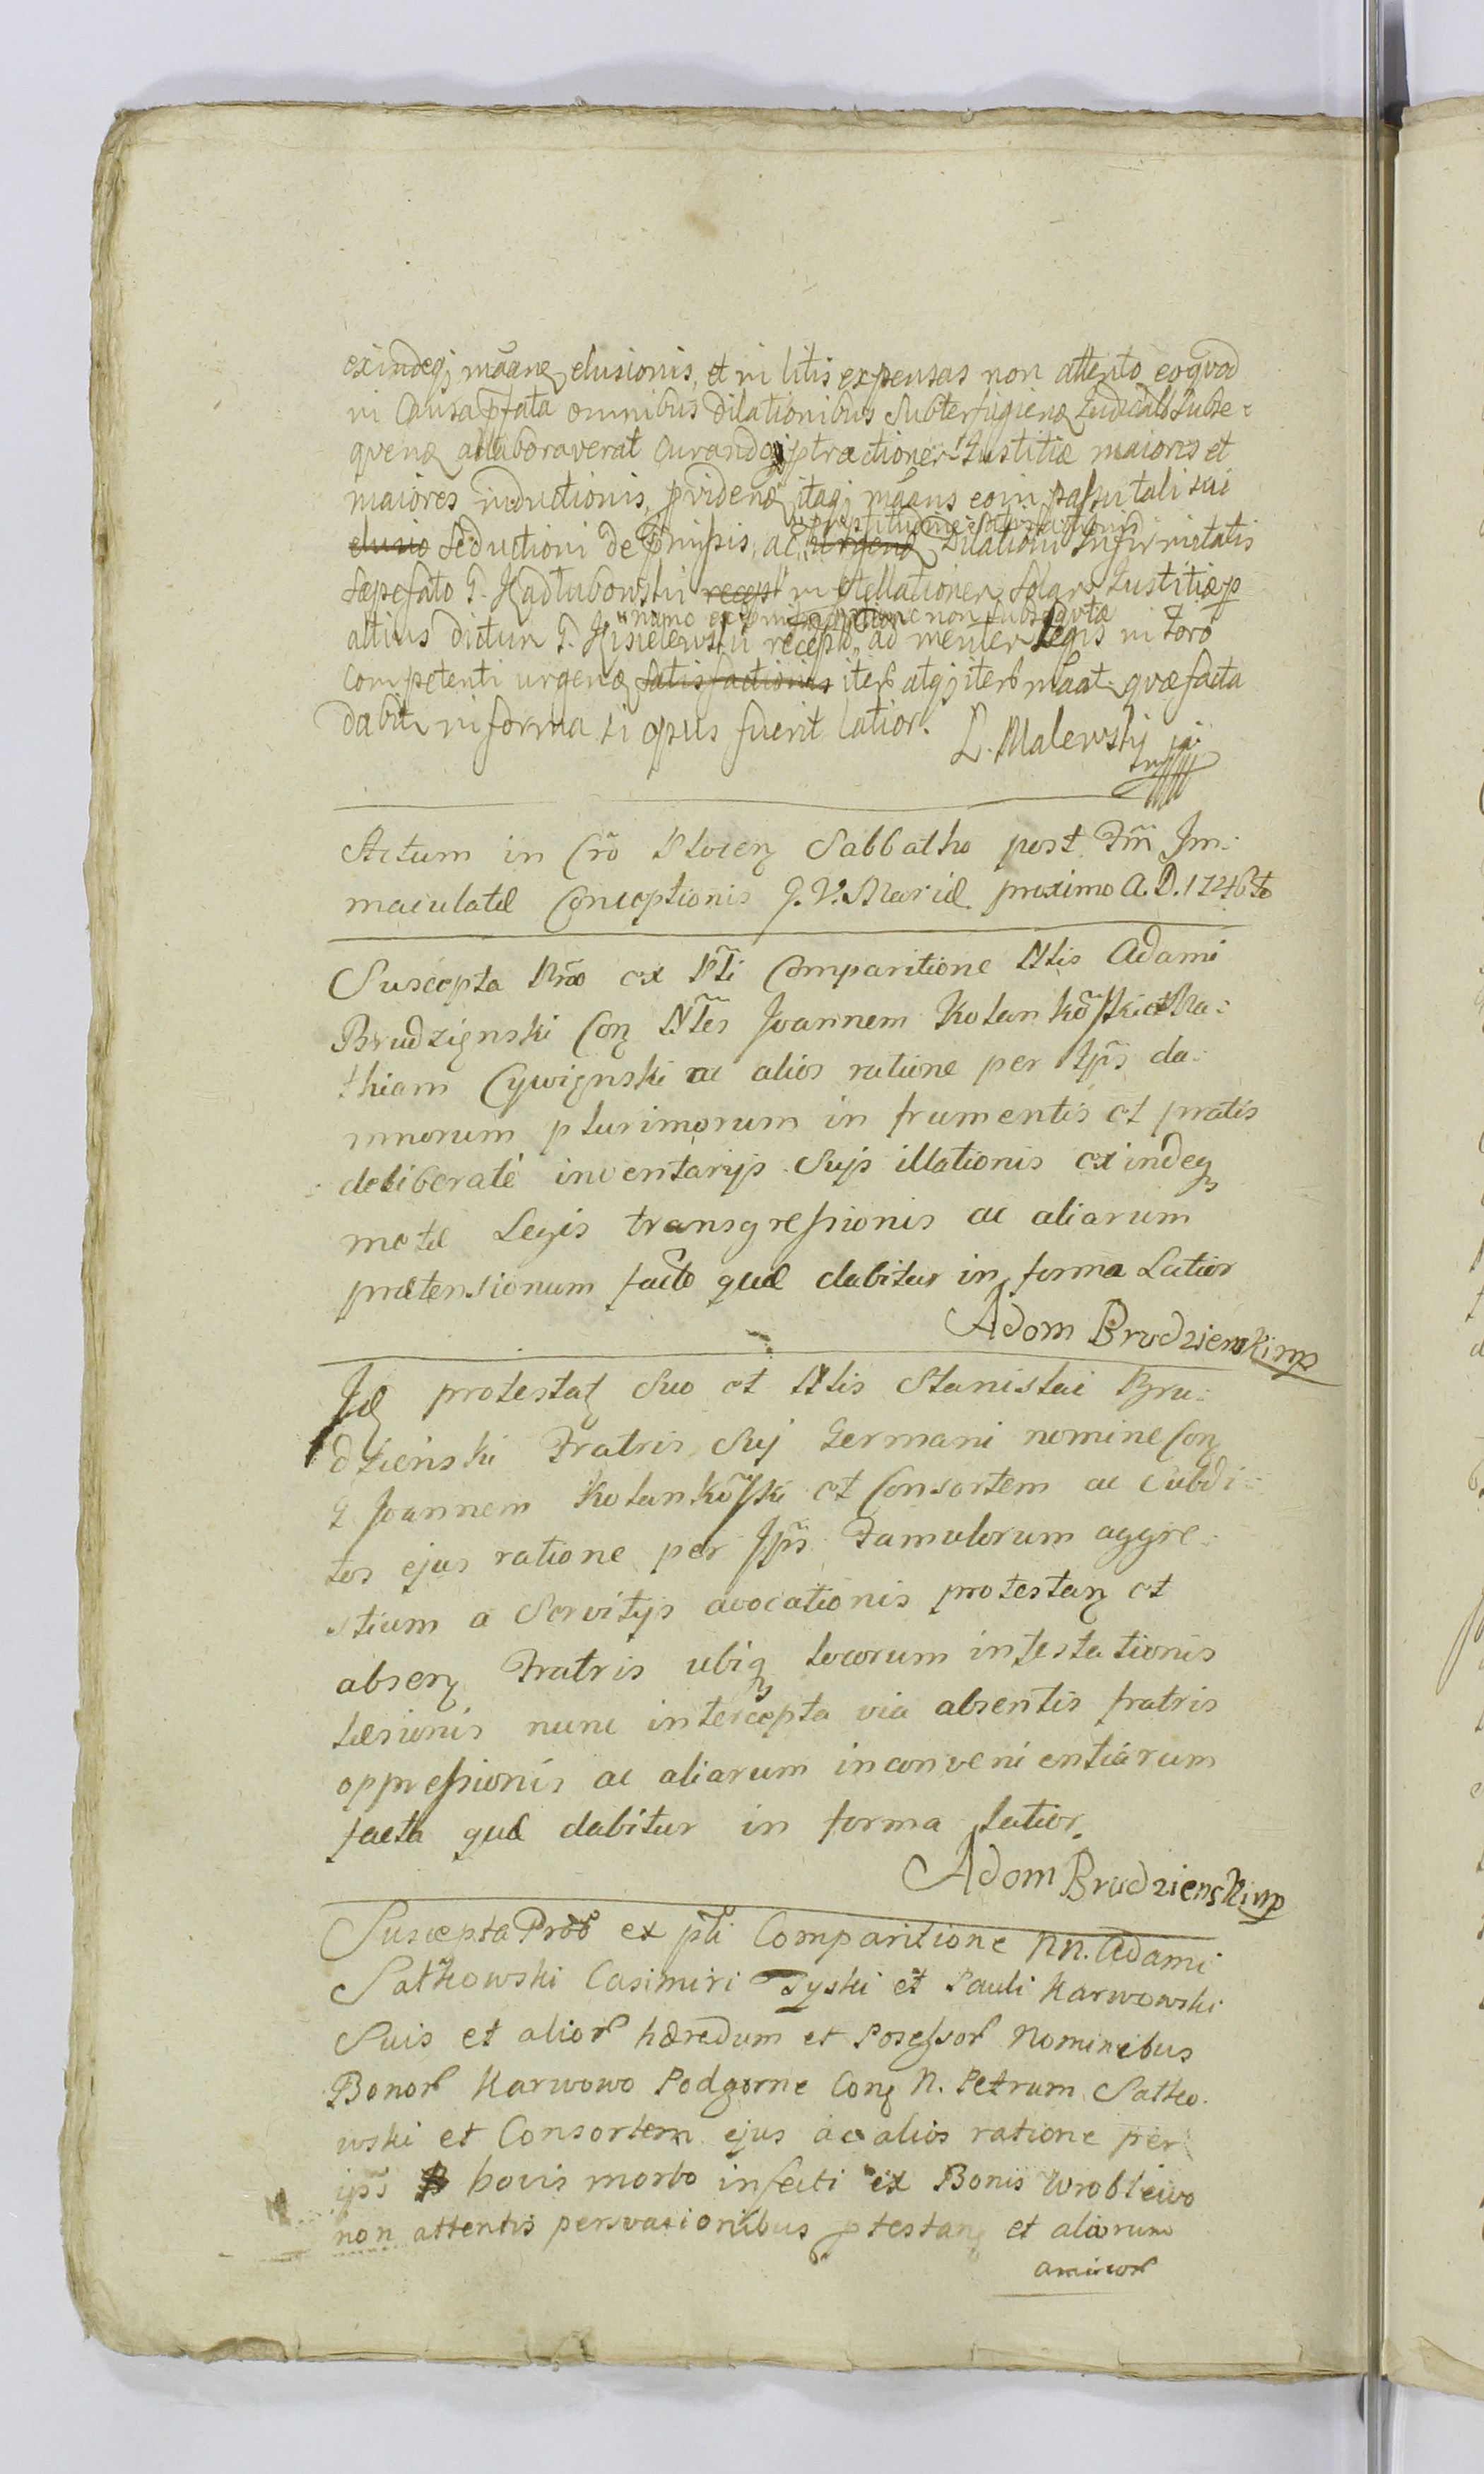 exindeq; mãanę elusionis, et in litis expensas non attento eoquod
in Causa pfata omnibus dilationibus Subterfugienę Judicats Subse-
quenę allaboraverat Curando ptractioner Justitiæ maiores et
maiores inductionis, pvidenę itaq; mãans eoin passu tali sui
Seductioni de pmissis, ac Dilationi Infirmitatis
Sæpefato G. Kadłubowski in Solari Justitiæ p
altius dictum G. Kisielewski recepto, ad mentem legis in Foro
Competenti urgenę satisfactionis iterũ atq; iterũ mãat quæ facta
dabit in forma si opus fuerit latior. L. Malewski

Actum in Crõ Plocen Sabbatho post Fm̃ Im:
maculatæ Conceptionis B. V. Mariæ proximo A. D. 1746to
Suscepta Prõ ex Pti Comparitione Nlis Adami
Brudzięnski Con Nles Joannem Kolankõski et Ma:
thiam Cywięnski ac alios ratione per Ipš da:
mnorum plurimorum in frumentis et pratis
deliberatè inventarijs Sujs illationis exindeq
motæ Legis transgressionis ac aliarum
prætensionum facto quæ dabitur in forma Latior
Adom Brudzienski mp
Id protestat Suo et Nlis Stanislai Bru:
dzienski Fratris Suj Germani nomine Con
G Joannem Kolankõski et Consortem ac Subdi:
tos ejus ratione per Ipš Famulorum aggre:
stium a Servitijs avocationis protestan et
absen Fratris ubiq locorum infestationis
læsionis nunc intercepta via absentis fratris
oppressionis ac aliarum inconvenientiarum
facta quæ dabitur in forma latior.
Adom Brudzienski mp
Suscepta Prõt ex pti Comparitione NN. Adami
Satkowski Casimiri Tyski et Pauli Karwowski
Suis et alior hæredum et Possessor Nominibus
Bonor Karwowo Podgorne Con N. Petrum Satko-
wski et Consortem ejus ac alios ratione per
ipš bovis morbo infecti ex Bonis Wroblewo
non attentis persvasionibus ptestan et aliorum
amicor